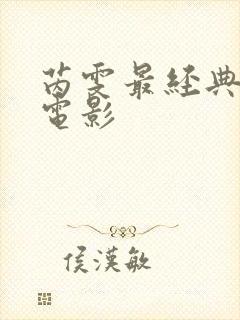 芮雯最經典
電影
侯漢敏